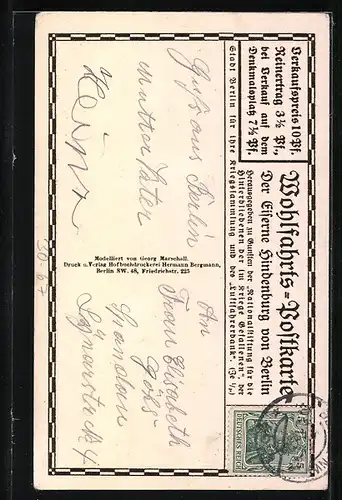 Wohlfahrts=Postkarte
Der Eiserne Hindenburg von Berlin
Herausgegeben zu Gunsten der „Nationalstiftung für die
Hinterbliebenen der im Kriege Gefallenen“, der
Stadt Berlin für ihre Kriegssammlung und des „Luftfahrerdank“. (Je ⅓)
Verkaufspreis 10 Pf.
Reinertrag 3½ Pf.,
bei Verkauf auf dem
Denkmalsplatz 7½ Pf.
Gruß aus Berlin
Mutter Vater
Heinz
Modelliert von Georg Marschall.
Druck u. Verlag Hofbuchdruckerei Hermann Bergmann,
Berlin SW. 48, Friedrichstr. 225
An
Frau Elisabeth
Spandau
4
DEUTSCHES REICH
5
5